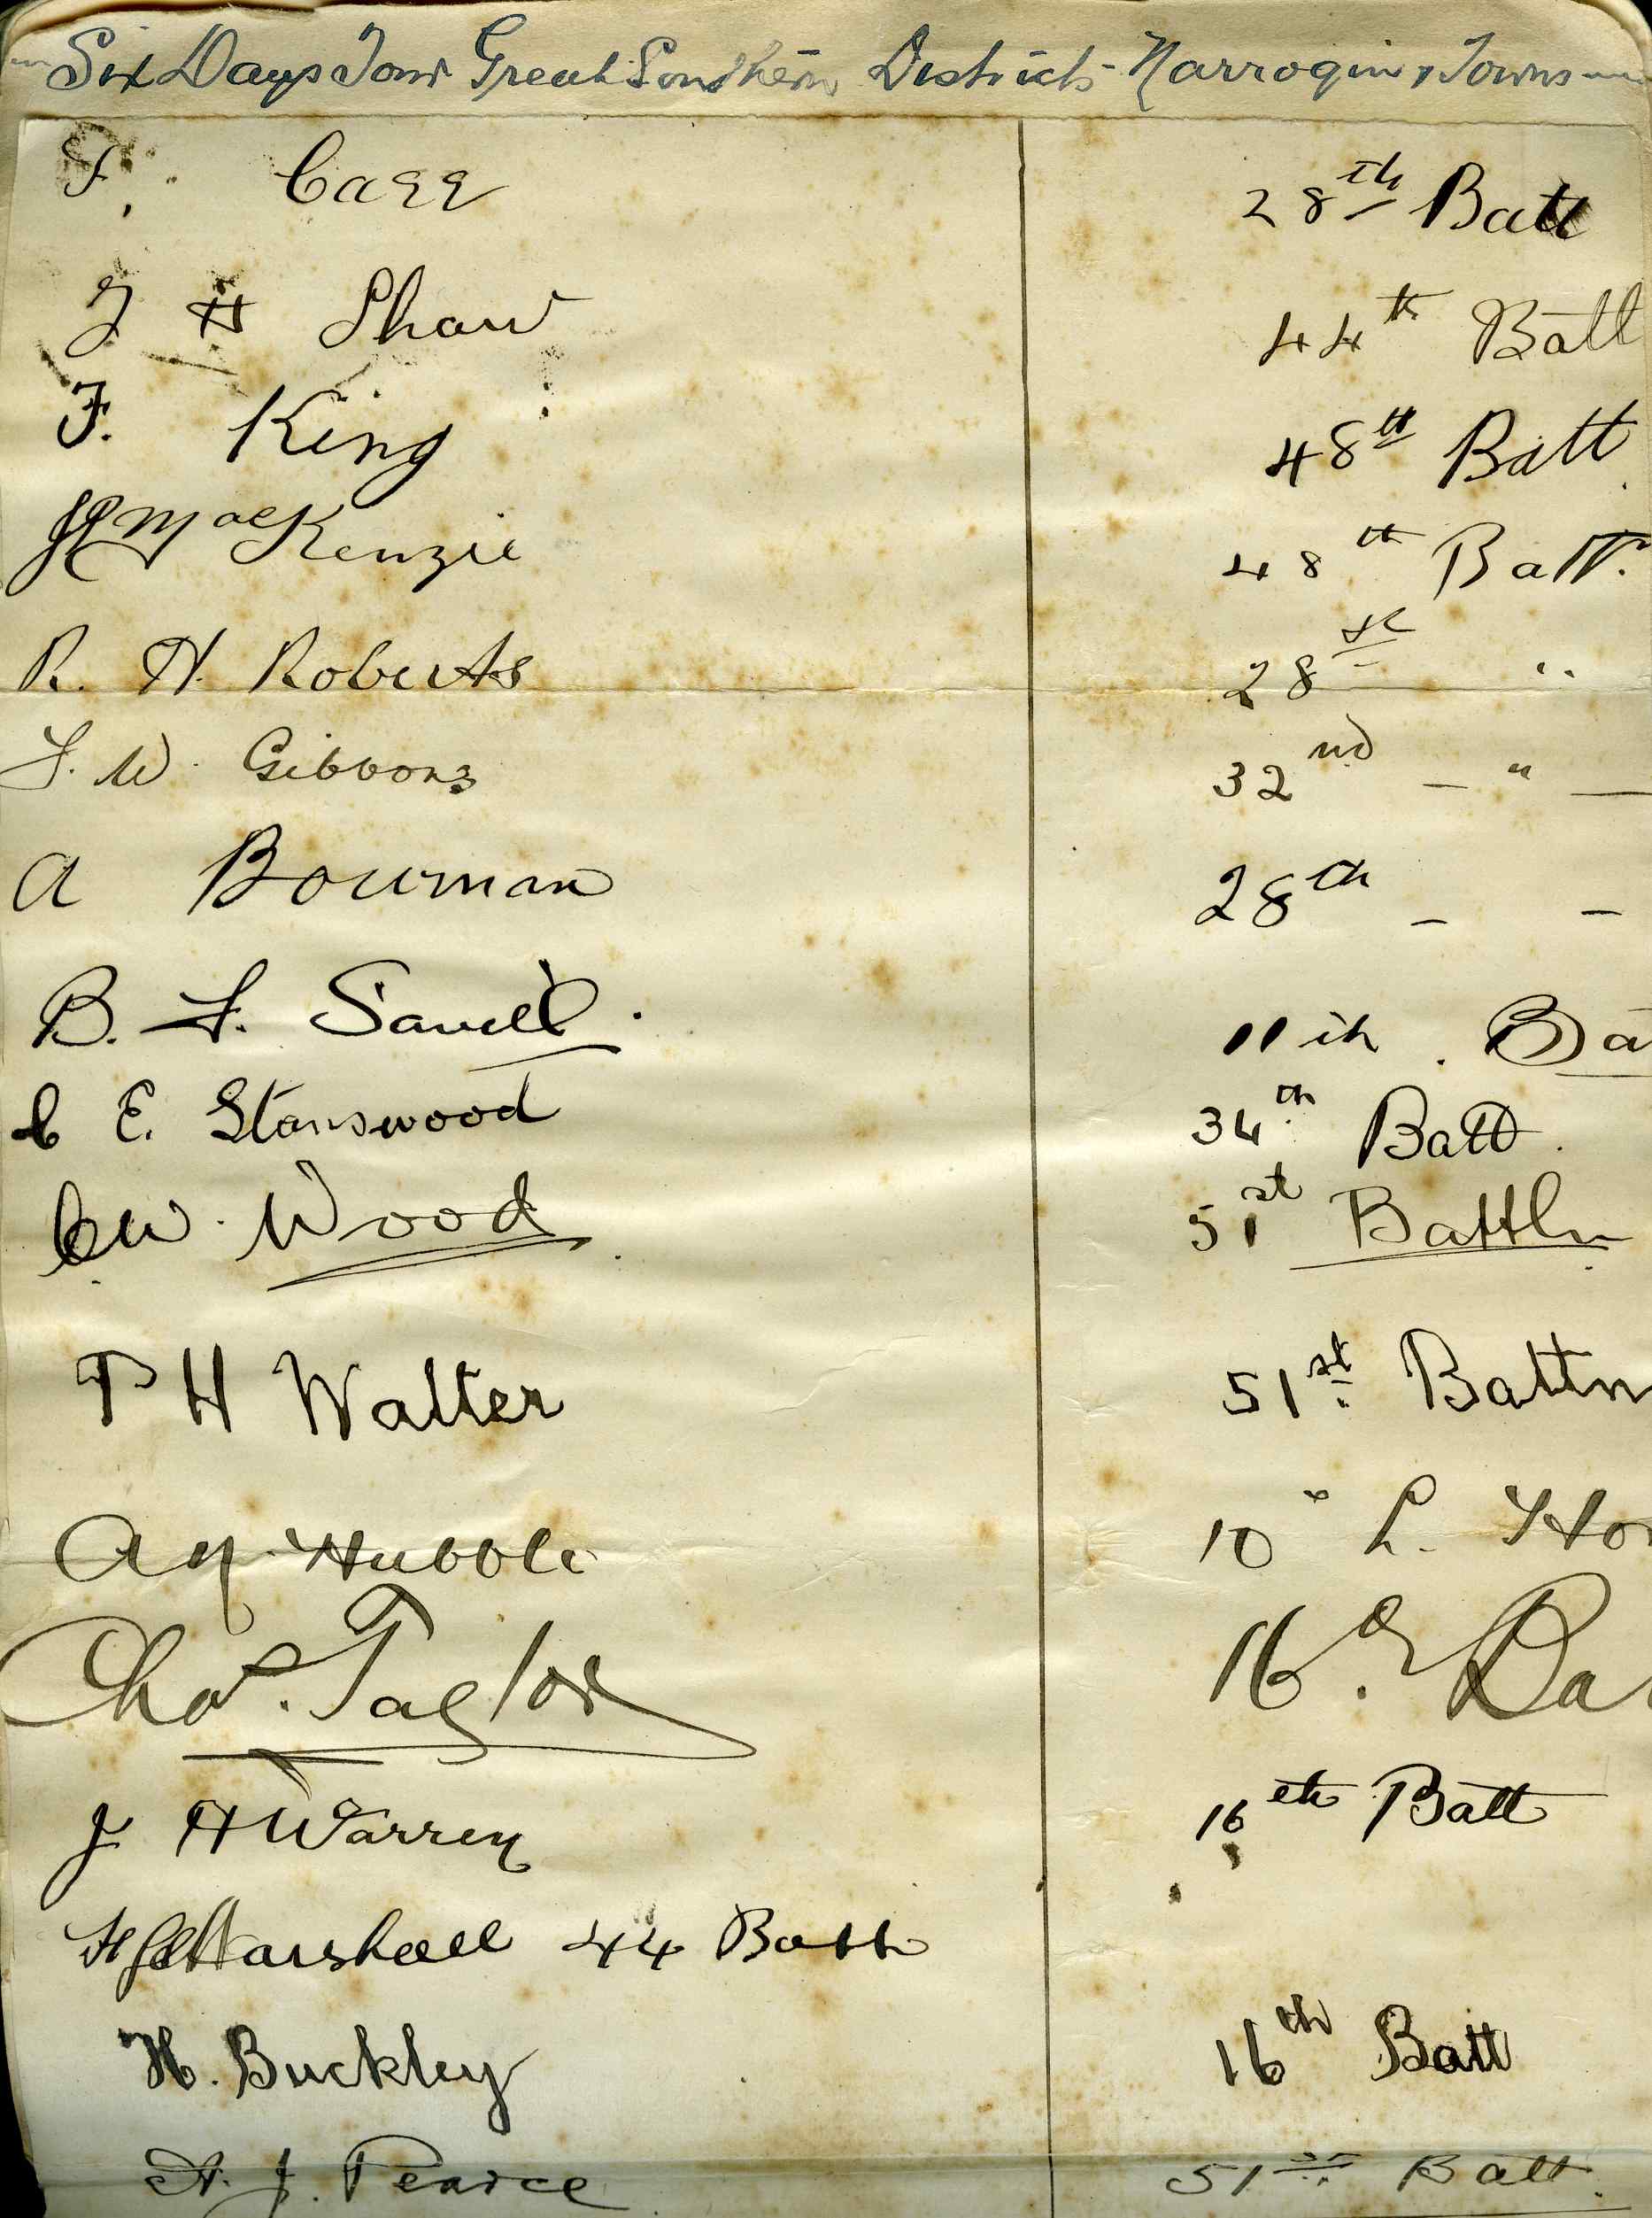 Six Days Tour Great Southern Districts - Narrogin, Towns
F. Carr 28th Batt
J H Shaw 44th Batt
F. King 48th Batt
MacKenzie 48th Batt.
R. H. Roberts 28th "
F. W. Gibbons 32nd - " -
A Bowman 28th - -
B. F. Savell. 11th. Ba
C E. Stanswood 34th Batt.
C.W. Wood 51st Battln
T H Walter 51st Battn
A Hubble 10 " L. Ho
Chas. Taylor 16th Ba
J H Warren 16th Batt
Marshall 44 Batt
H. Buckley 16th Batt
A. J. Pearce 51st Batt.